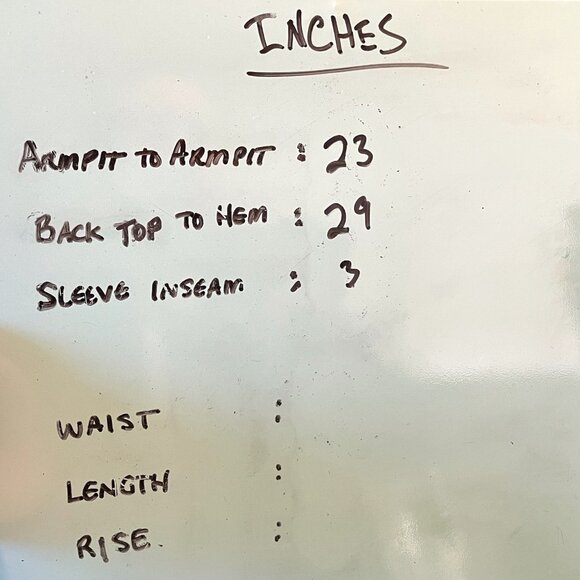 INCHES
ARMPIT TO ARMPIT : 23
BACK TOP TO HEM : 29
SLEEVE INSEAM : 3
WAIST :
LENGTH :
RISE :